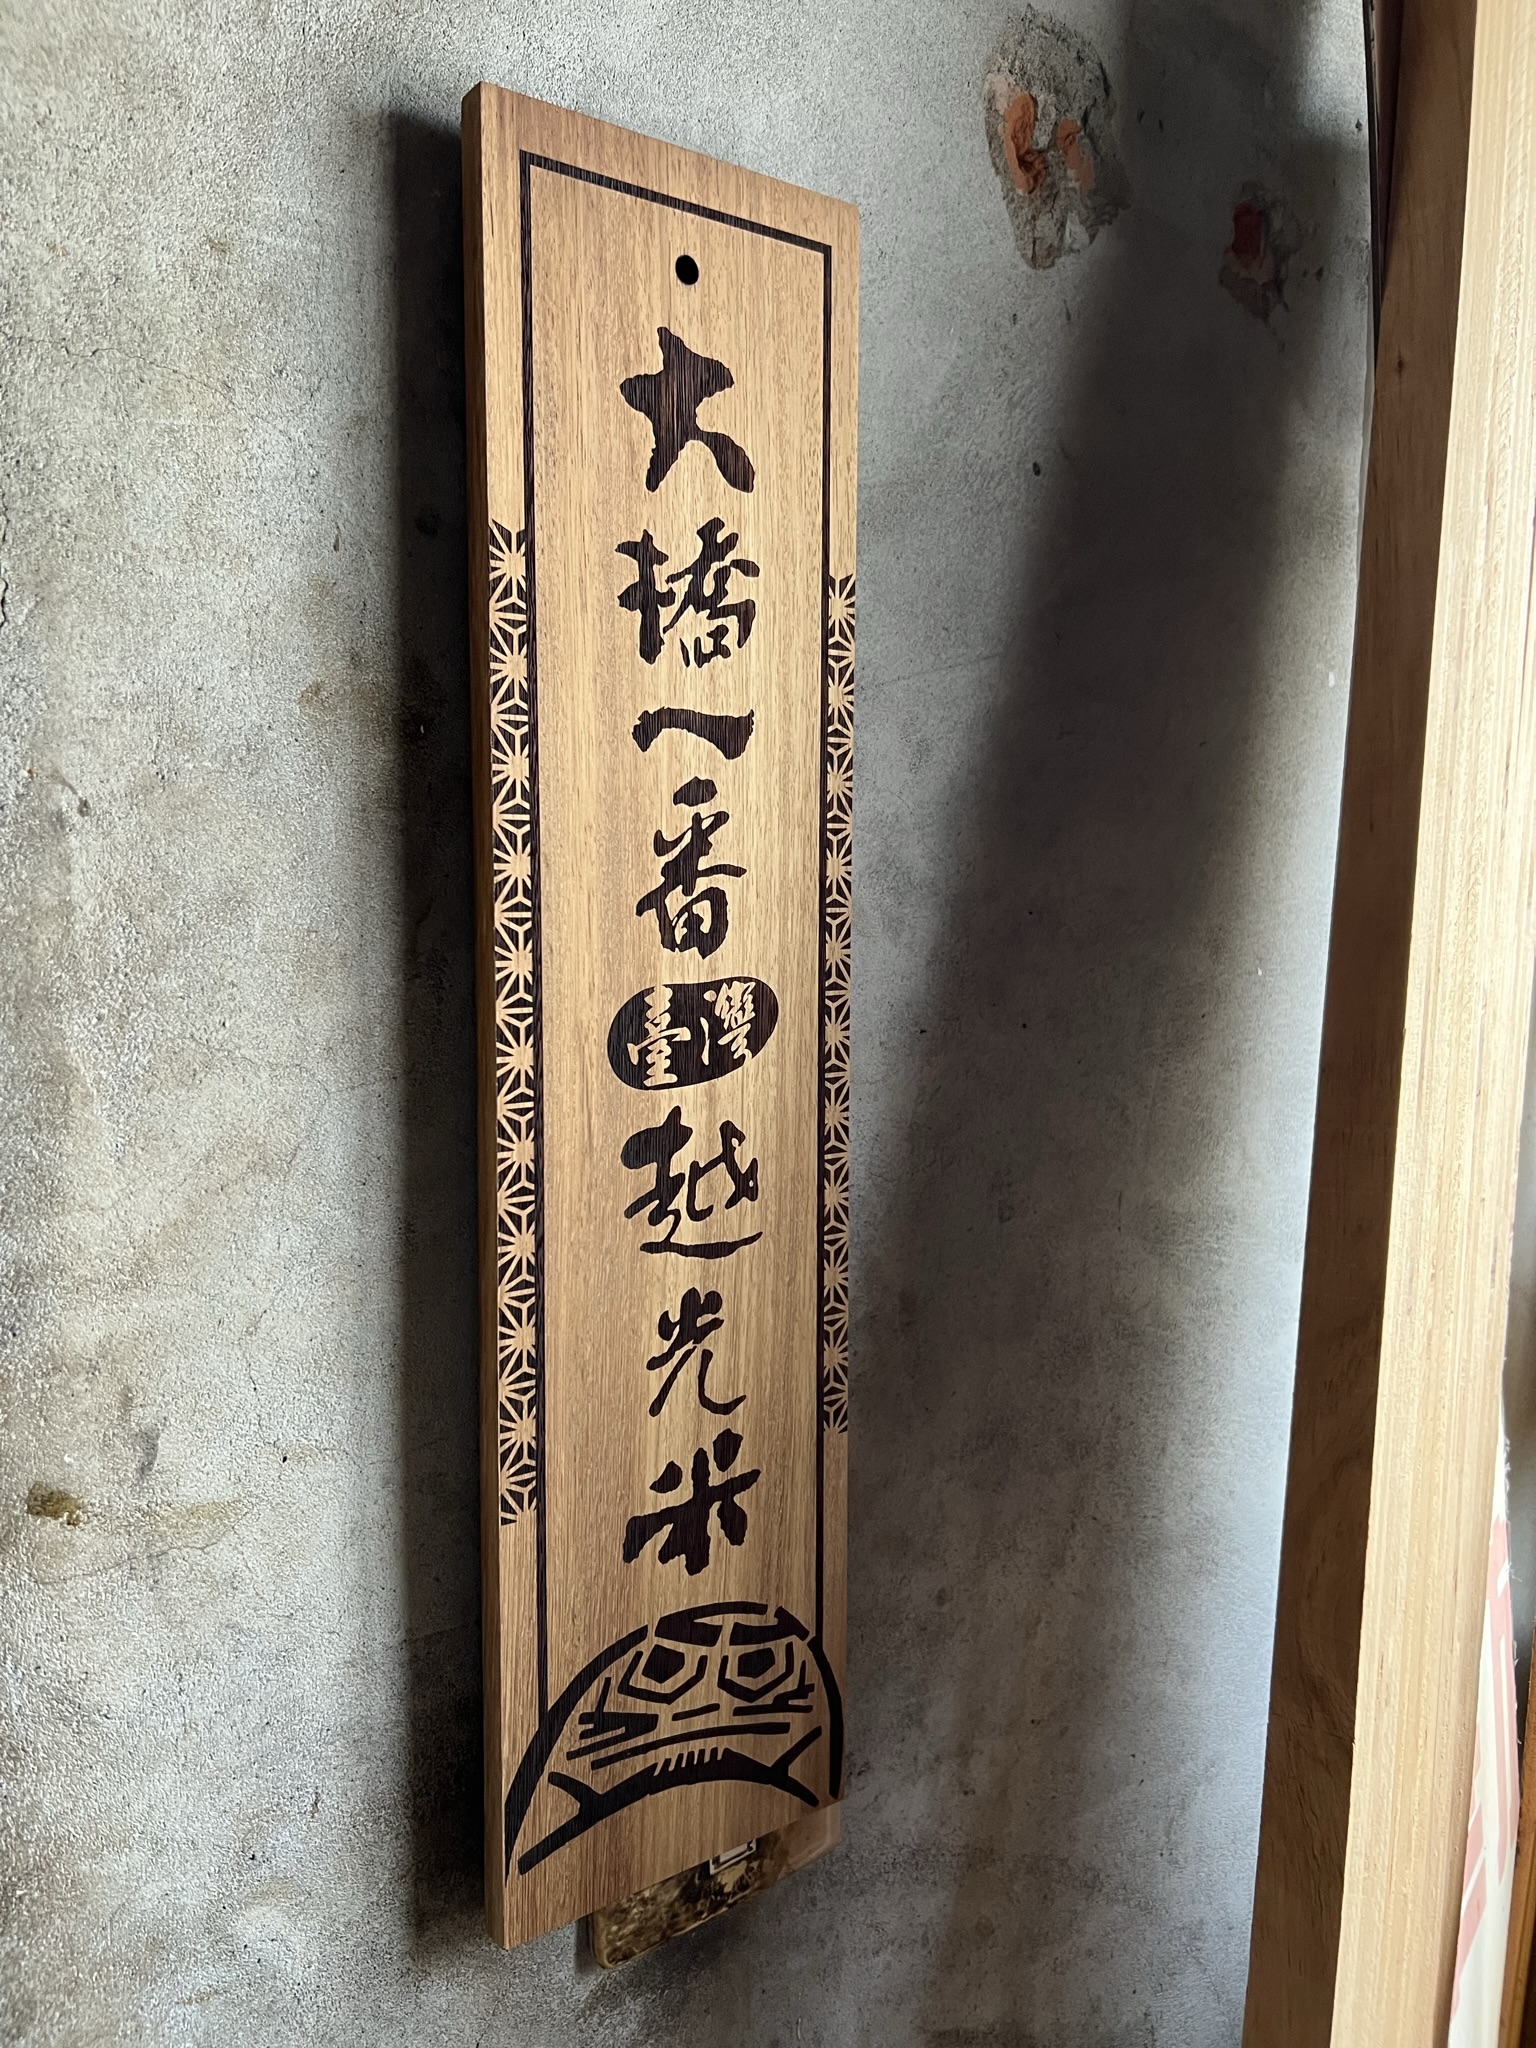 大橋一番
臺灣
越光米